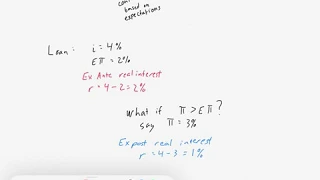 based on
expectations
Loan: i = 4%
Eπ = 2%
Ex Ante real interest
r = 4 - 2 = 2%
What if π > Eπ?
say π = 3%
Ex post real interest
r = 4 - 3 = 1%